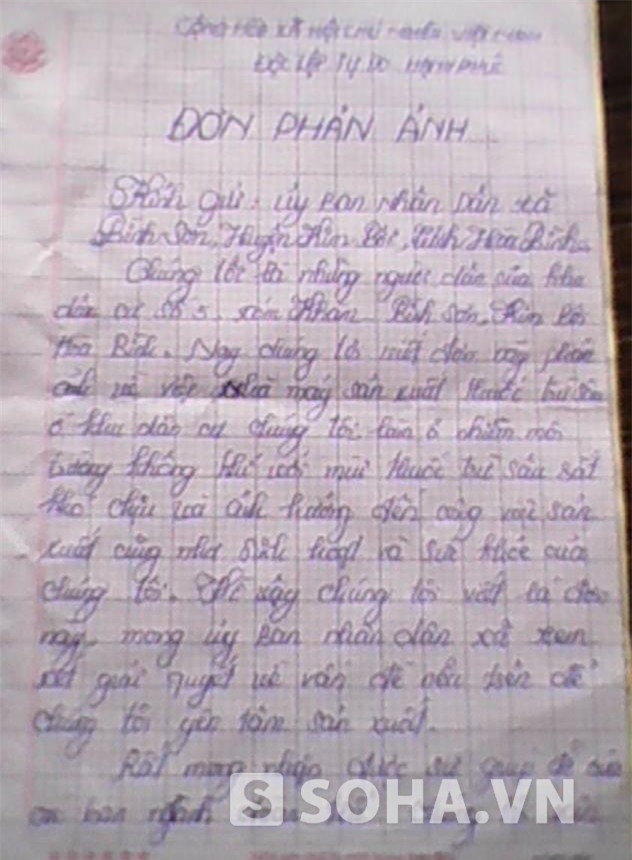 CỘNG HÒA XÃ HỘI CHỦ NGHĨA VIỆT NAM
ĐỘC LẬP TỰ DO HẠNH PHÚC
ĐƠN PHẢN ÁNH
Kính gửi: ủy Ban Nhân Dân xã
Bình Sơn, Huyện Kim Bôi, Tỉnh Hòa Bình
Chúng tôi là những người dân của khu
dân cư số 5 xóm Khoan Bình Sơn, Kim Bôi
Hòa Bình. Nay chúng tôi viết đơn này phản
ánh về việc nhà máy sản xuất thuốc trừ sâu
ở khu dân cư chúng tôi làm ô nhiễm môi
trường không khí với mùi thuốc trừ sâu rất
khó chịu và ảnh hưởng đến công việc sản
xuất cũng như sinh hoạt và sức khỏe của
chúng tôi. Vì vậy chúng tôi viết lá đơn
này mong ủy Ban nhân dân xã xem
xét giải quyết về vấn đề nêu trên để
chúng tôi yên tâm sản xuất.
Rất mong nhận được sự giúp đỡ của
các ban ngành
SOHA.VN